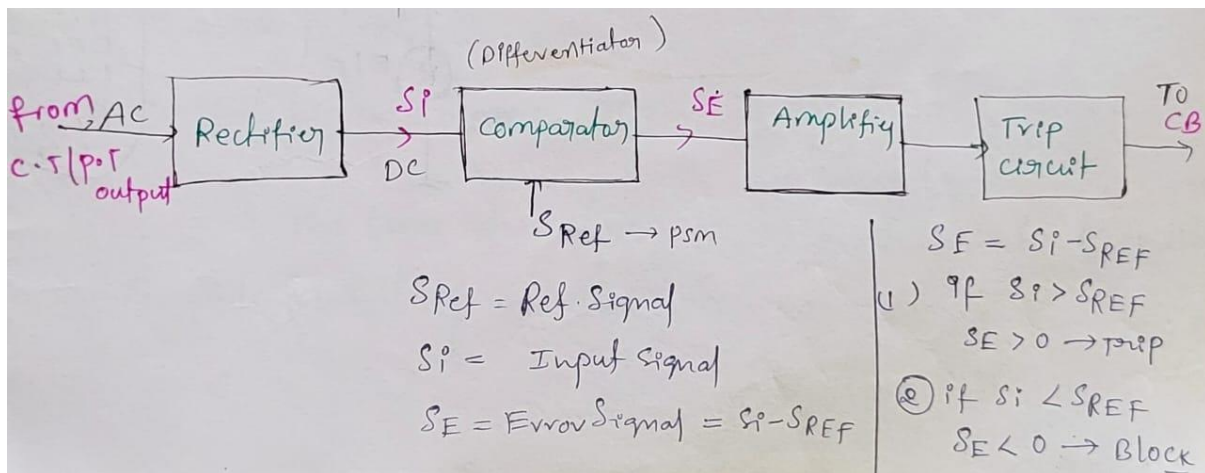 (Differentiator)
from AC
C.T/P.T
output
Rectifier
Si
DC
Comparator
SRef → PSM
SE
Amplifiy
Trip
circuit
TO
CB
SRef = Ref. Signal
Si = Input Signal
SE = Error Signal = Si-SREF
SE = Si-SREF
(1) If Si > SREF
SE > 0 → Trip
② if Si < SREF
SE < 0 → Block